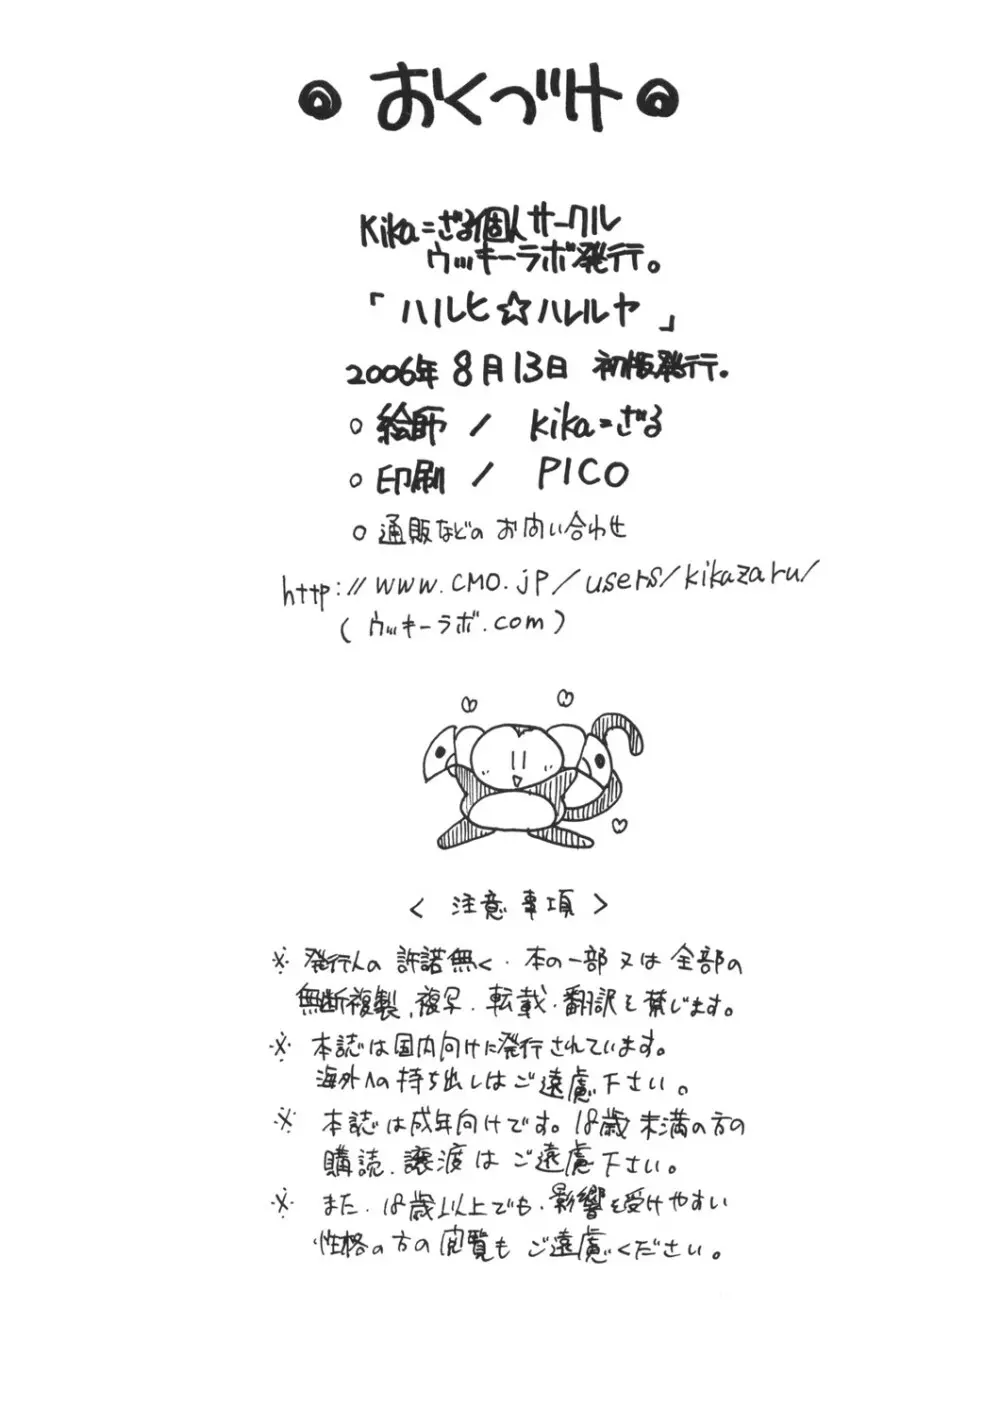 おくづけ
Kika=ざる個人サークル
ウッキーラボ発行。
「ハルヒ☆ハレルヤ」
2006年8月13日 初版発行。
○絵師 / Kika=ざる
○印刷 / PICO
○通販などのお問い合わせ
http://www.cmo.jp/users/kikazaru/
(ウッキーラボ.com)
< 注意事項 >
※ 発行人の許諾無く、本の一部又は全部の
無断複製、複写、転載、翻訳を禁じます。
※ 本誌は国内向けに発行されています。
海外への持ち出しはご遠慮下さい。
※ 本誌は成年向けです。18歳未満の方の
購読、譲渡はご遠慮下さい。
※ また、18歳以上でも、影響を受けやすい
性格の方の閲覧もご遠慮ください。